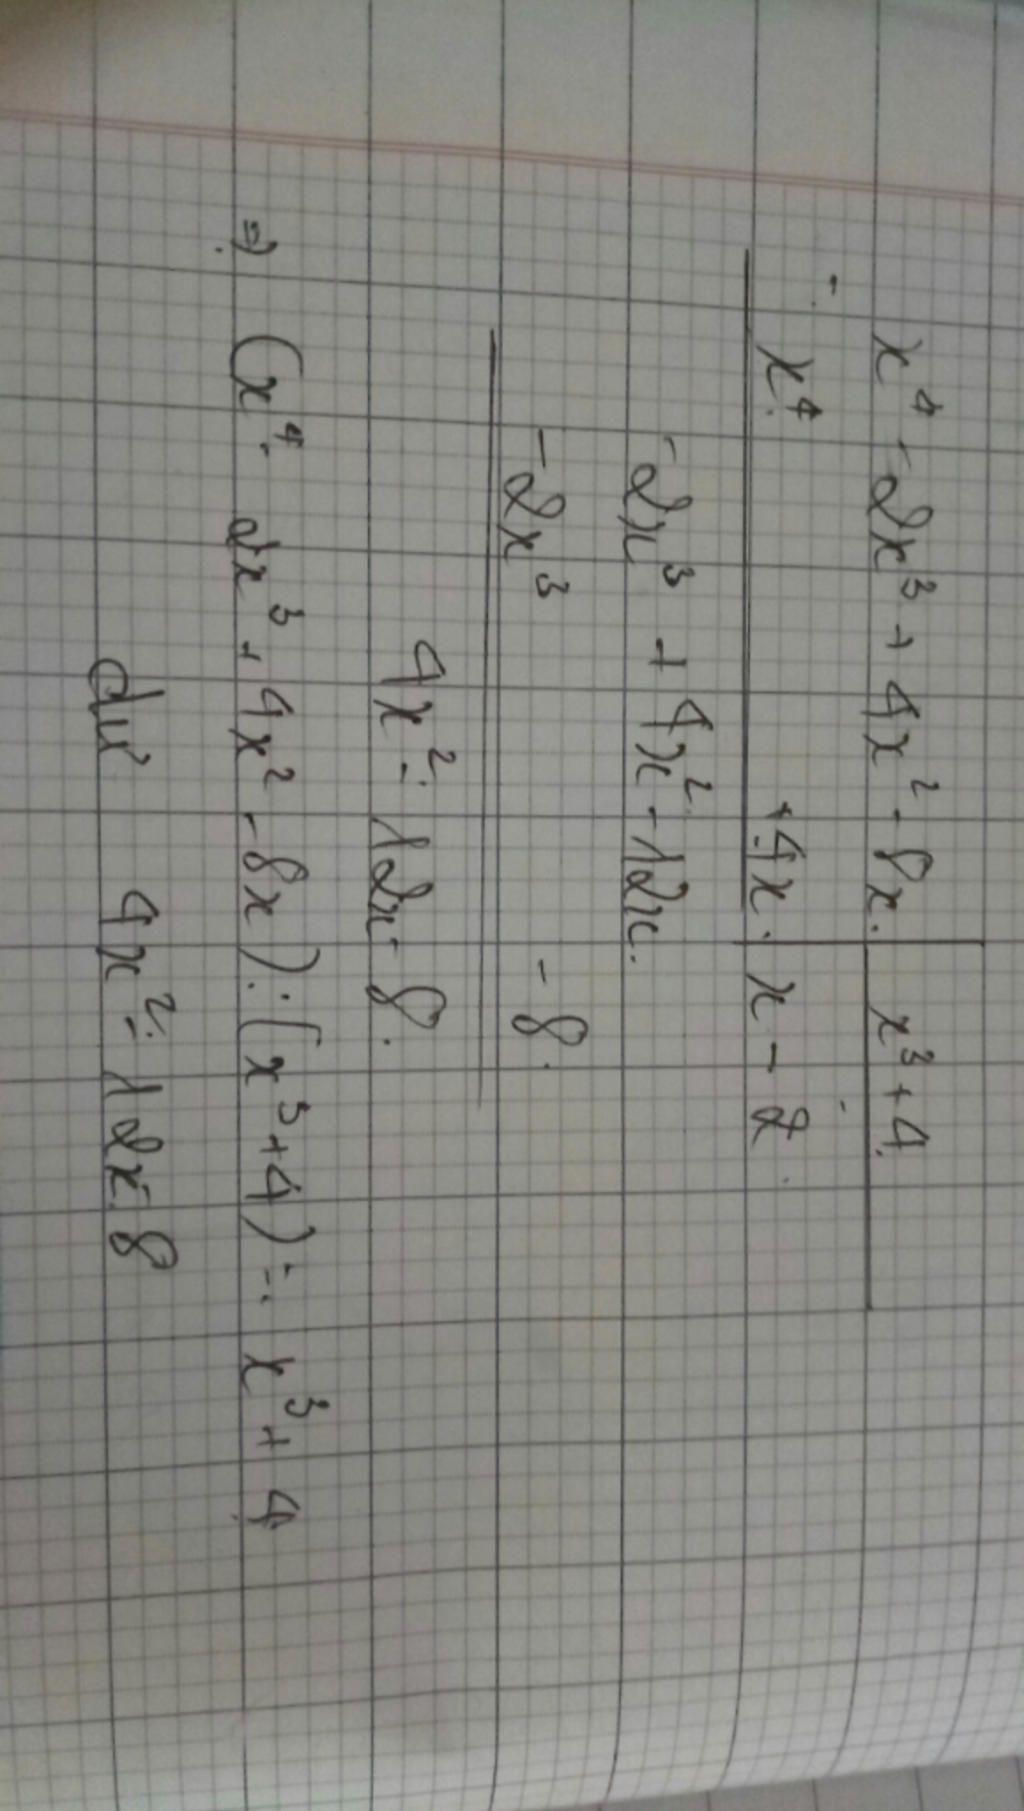 x⁴ - 2x³ + 4x² - 8x. | x³ + 4.
- x⁴ + 4x. | x - 2.
-2x³ + 4x² - 12x.
-2x³ - 8.
4x² - 12x - 8.
=> (x⁴ - 2x³ + 4x² - 8x) : (x³ + 4) = x³ + 4
dư 4x² - 12x - 8